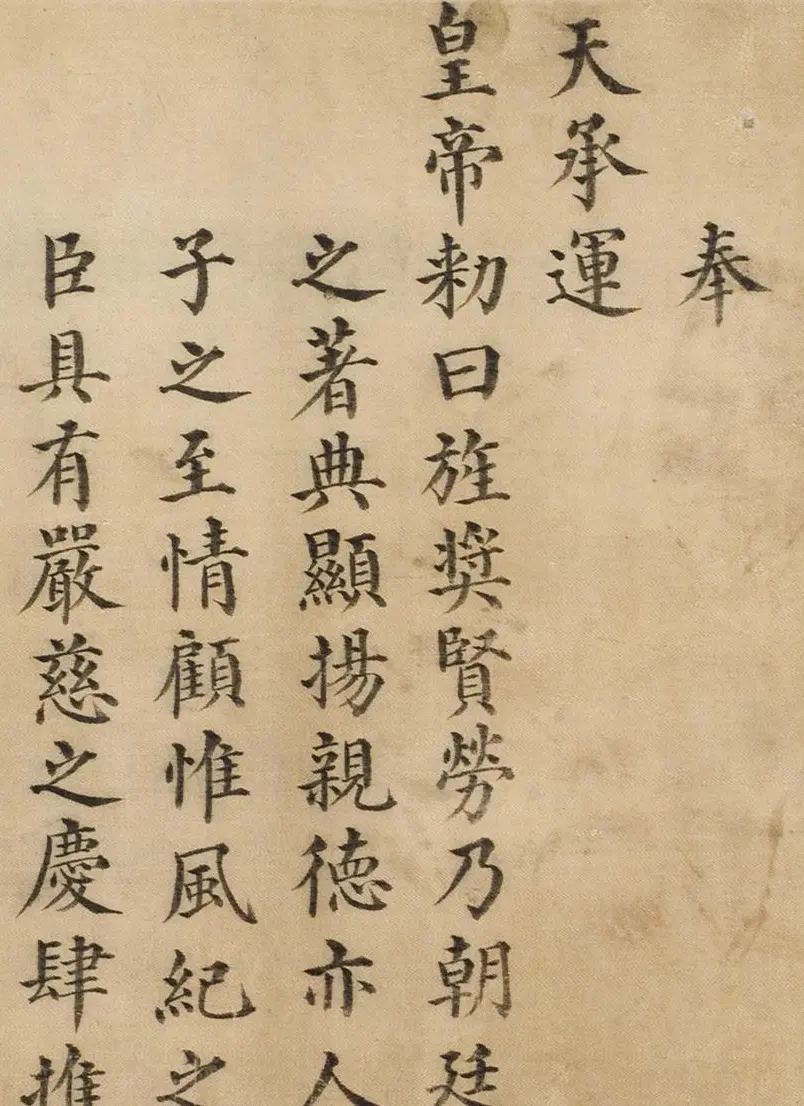 奉
天承運
皇帝勑曰旌奬賢勞乃朝廷
之著典顯揚親徳亦人
子之至情顧惟風紀之
臣具有嚴慈之慶肆推